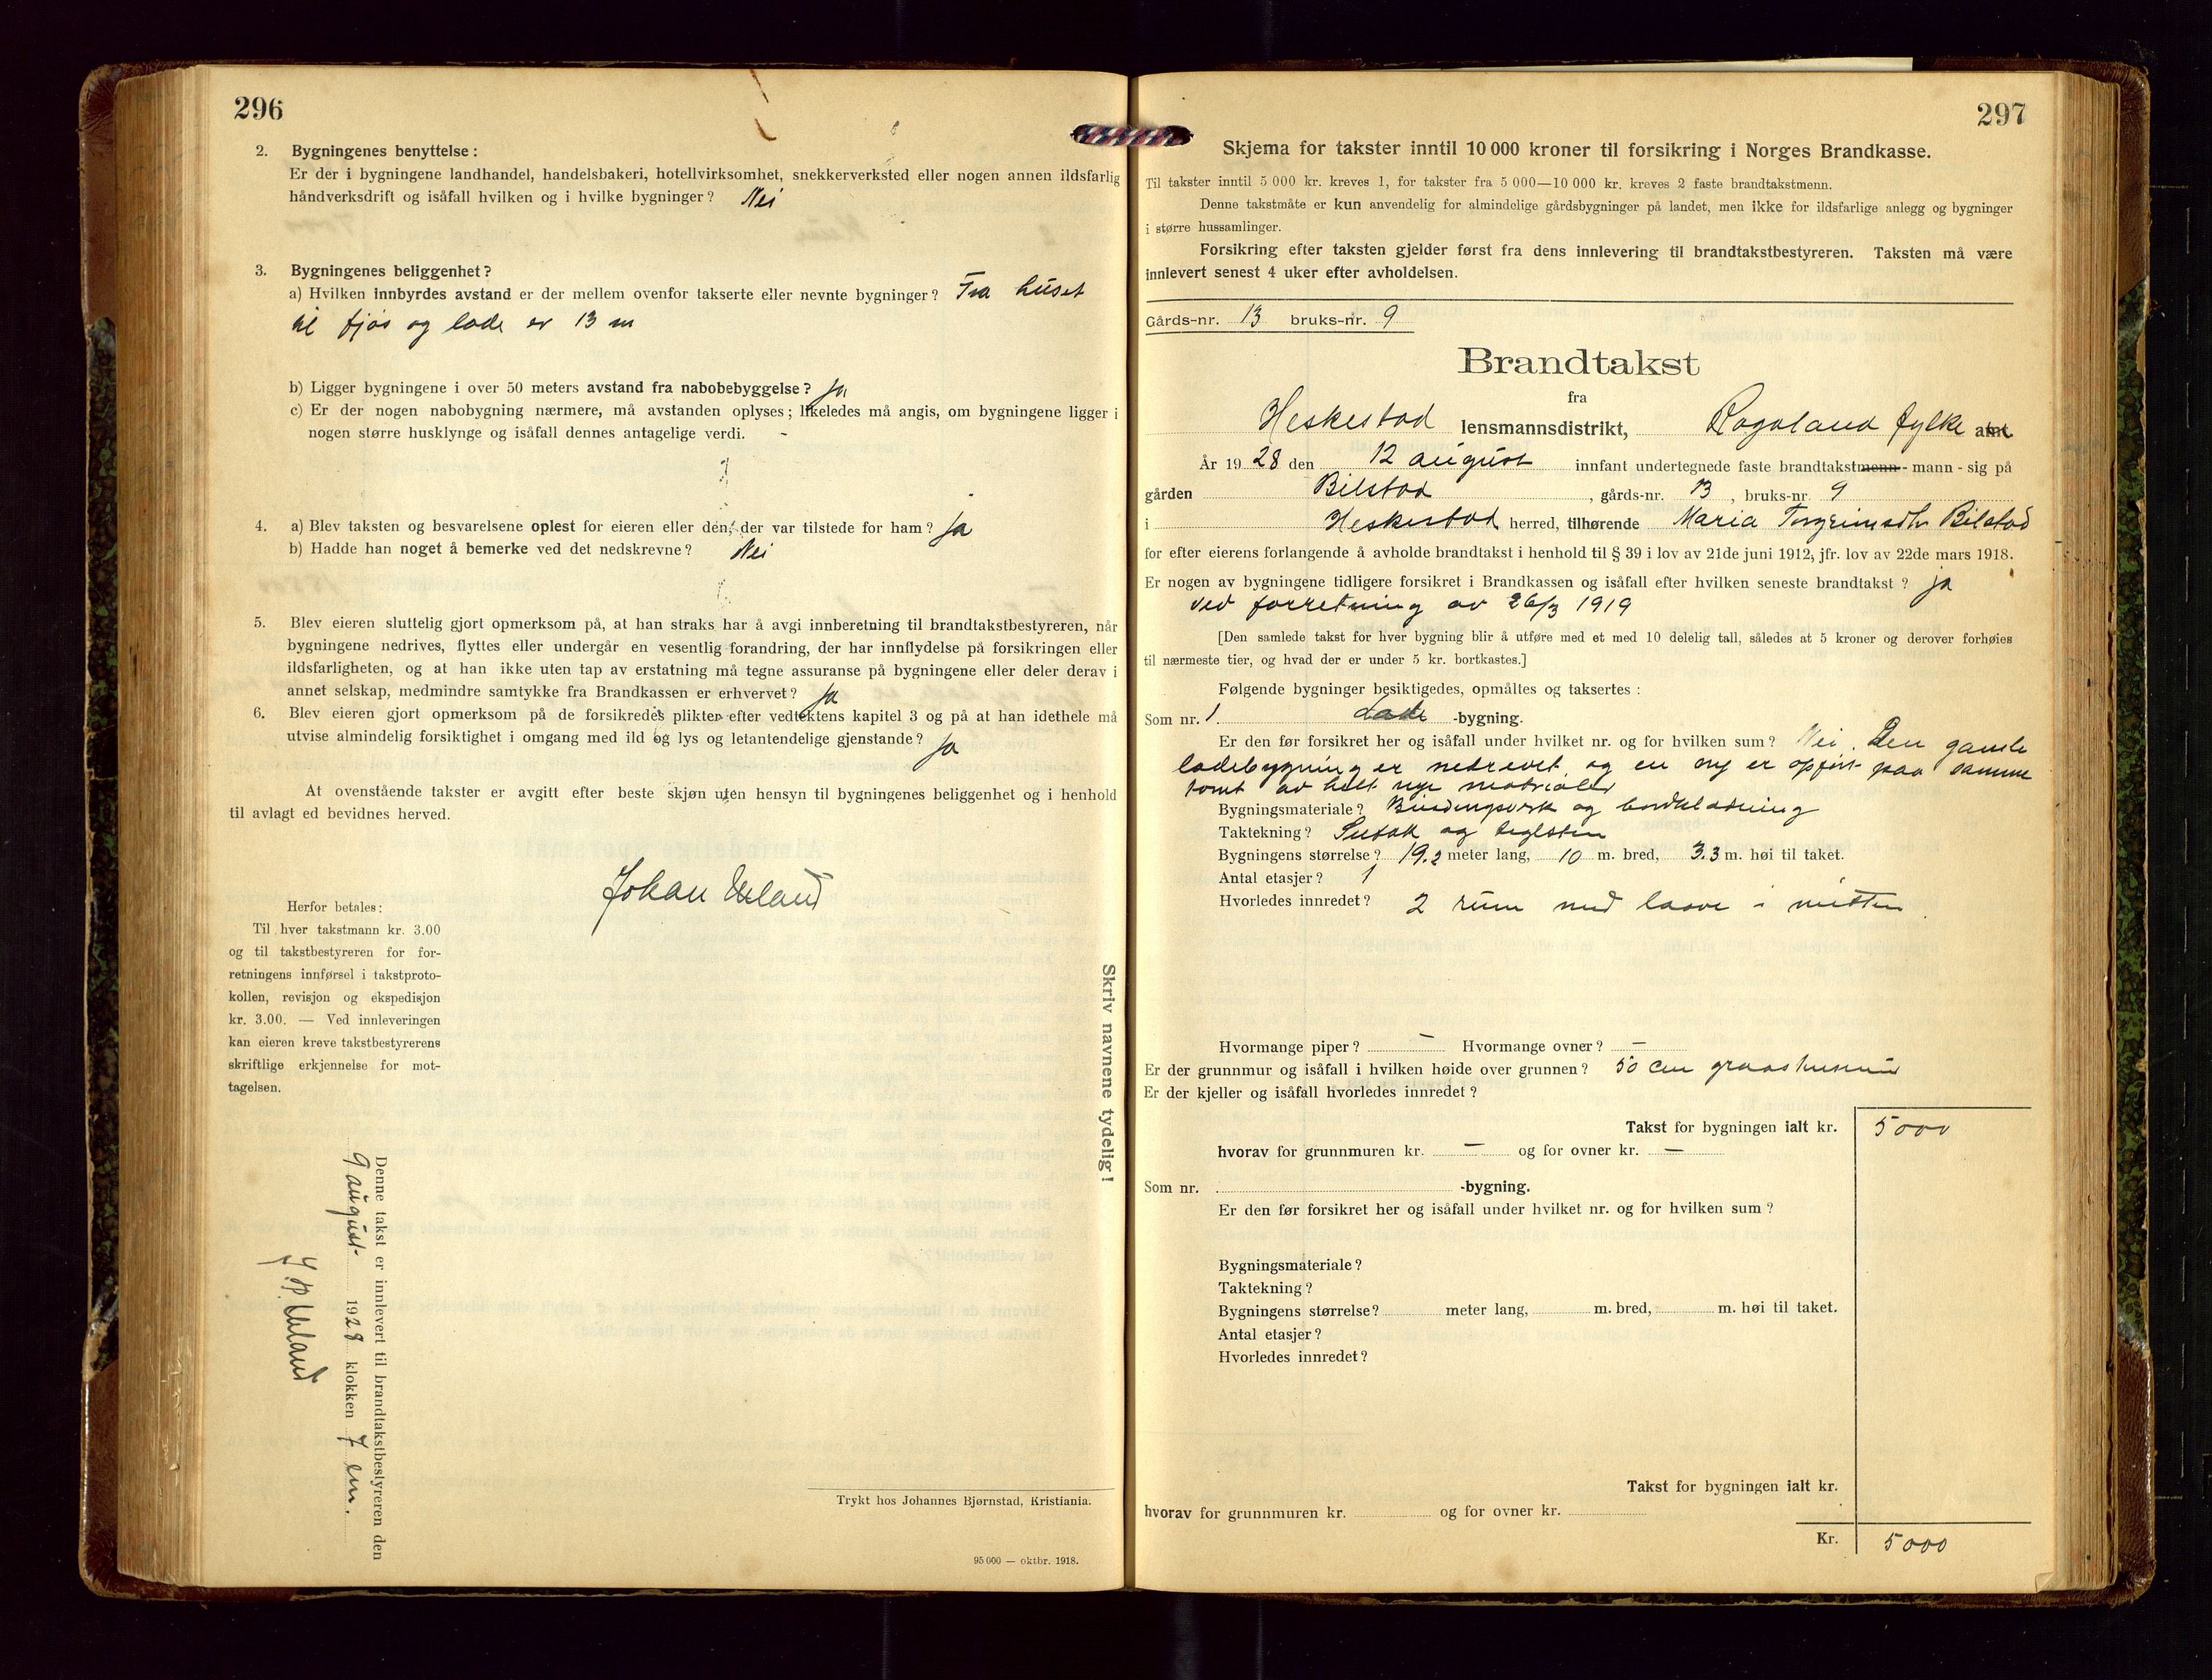 296
2. Bygningenes benyttelse :
Er der i bygningene landhandel, handelsbakeri, hotellvirksomhet, snekkerverksted eller nogen annen ildsfarlig
håndverksdrift og isåfall hvilken og i hvilke bygninger ? Nei
3. Bygningenes beliggenhet ?
a) Hvilken innbyrdes avstand er der mellem ovenfor takserte eller nevnte bygninger ? Fra huset
til fjøs og lade er 13 m
b) Ligger bygningene i over 50 meters avstand fra nabobebyggelse ? ja
c) Er der nogen nabobygning nærmere, må avstanden oplyses ; likeledes må angis, om bygningene ligger i
nogen større husklynge og isåfall dennes antagelige verdi. -
4. a) Blev taksten og besvarelsene oplest for eieren eller den, der var tilstede for ham ? ja
b) Hadde han noget å bemerke ved det nedskrevne ? Nei
5. Blev eieren sluttelig gjort opmerksom på, at han straks har å avgi innberetning til brandtakstbestyreren, når
bygningene nedrives, flyttes eller undergår en vesentlig forandring, der har innflydelse på forsikringen eller
ildsfarligheten, og at han ikke uten tap av erstatning må tegne assuranse på bygningene eller deler derav i
annet selskap, medmindre samtykke fra Brandkassen er erhvervet ? ja
6. Blev eieren gjort opmerksom på de forsikredes plikter efter vedtektens kapitel 3 og på at han idethele må
utvise almindelig forsiktighet i omgang med ild og lys og letantendelige gjenstande ? ja
At ovenstående takster er avgitt efter beste skjøn uten hensyn til bygningenes beliggenhet og i henhold
til avlagt ed bevidnes herved.
Johan Ueland
Herfor betales :
Til hver takstmann kr. 3.00
og til takstbestyreren for for-
retningens innførsel i takstproto-
kollen, revisjon og ekspedisjon
kr. 3.00. — Ved innleveringen
kan eieren kreve takstbestyrerens
skriftlige erkjennelse for mot-
tagelsen.
Skriv navnene tydelig !
Denne takst er innlevert til brandtakstbestyreren den
9 august 1928 klokken 7 em.
Ueland
Trykt hos Johannes Bjørnstad, Kristiania.
95 000 — oktbr. 1918.
297
Skjema for takster inntil 10 000 kroner til forsikring i Norges Brandkasse.
Til takster inntil 5 000 kr. kreves 1, for takster fra 5 000—10 000 kr. kreves 2 faste brandtakstmenn.
Denne takstmåte er kun anvendelig for almindelige gårdsbygninger på landet, men ikke for ildsfarlige anlegg og bygninger
i større hussamlinger.
Forsikring efter taksten gjelder først fra dens innlevering til brandtakstbestyreren. Taksten må være
innlevert senest 4 uker efter avholdelsen.
Gårds-nr. 13 bruks-nr. 9
Brandtakst
fra
Heskestad lensmannsdistrikt, Rogaland fylke amt
År 1928 den 12 august innfant undertegnede faste brandtakstmenn - mann - sig på
gården Bilstad , gårds-nr. 13 , bruks-nr. 9
i Heskestad herred, tilhørende Maria Torgeirsdtr Bilstad
for efter eierens forlangende å avholde brandtakst i henhold til § 39 i lov av 21de juni 1912, jfr. lov av 22de mars 1918.
Er nogen av bygningene tidligere forsikret i Brandkassen og isåfall efter hvilken seneste brandtakst ? ja
ved forretning av 26/3 1919
[Den samlede takst for hver bygning blir å utføre med et med 10 delelig tall, således at 5 kroner og derover forhøies
til nærmeste tier, og hvad der er under 5 kr. bortkastes.]
Følgende bygninger besiktigedes, opmåltes og taksertes :
Som nr. 1 Lade -bygning.
Er den før forsikret her og isåfall under hvilket nr. og for hvilken sum ? Nei. Den gamle
ladebygning er nedrevet og en ny er opført paa samme
tomt av helt nye materialer
Bygningsmateriale ? Bindingsverk og bordklædning
Taktekning ? Sutak og teglsten
Bygningens størrelse ? 19.2 meter lang, 10 m. bred, 3.3 m. høi til taket.
Antal etasjer ? 1
Hvorledes innredet ? 2 rum med laave i mitten
Hvormange piper ? — Hvormange ovner ? —
Er der grunnmur og isåfall i hvilken høide over grunnen ? 50 cm
Er der kjeller og isåfall hvorledes innredet ?
Takst for bygningen ialt kr. 5000
hvorav for grunnmuren kr. — og for ovner kr. —
Som nr. -bygning.
Er den før forsikret her og isåfall under hvilket nr. og for hvilken sum ?
Bygningsmateriale ?
Taktekning ?
Bygningens størrelse ? meter lang, m. bred, m. høi til taket.
Antal etasjer ?
Hvorledes innredet ?
Takst for bygningen ialt kr.
hvorav for grunnmuren kr. og for ovner kr.
Kr. 5000